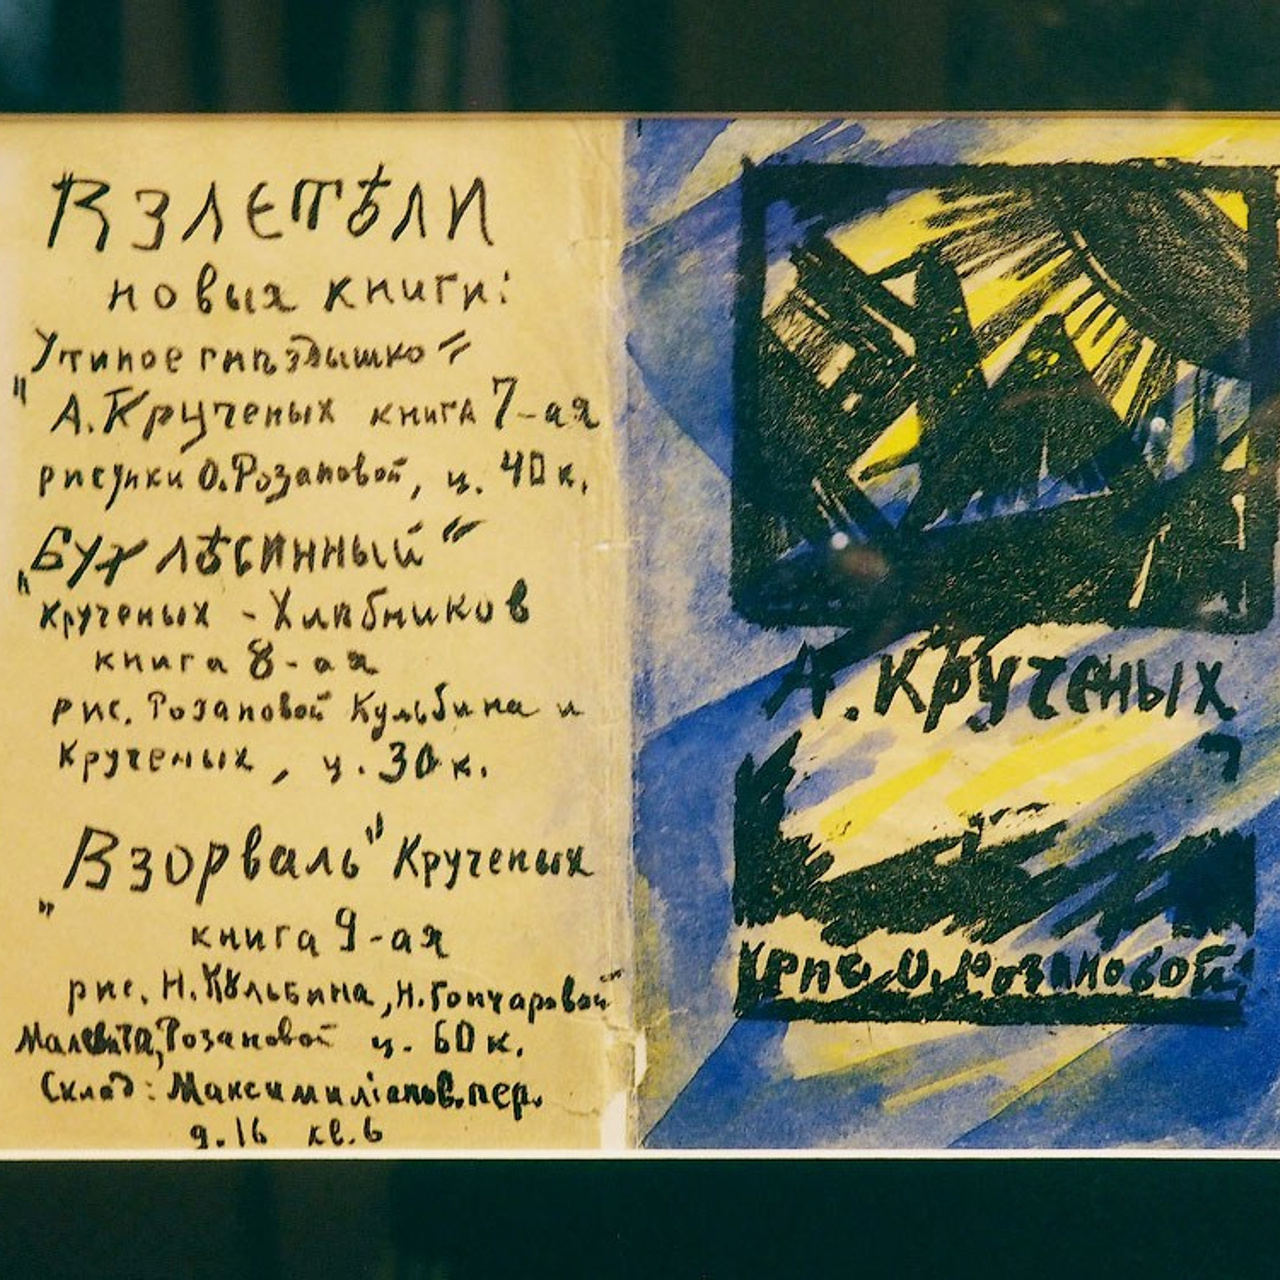 ВЗЛЕТѢЛИ
новыя книги:
„Утиное гнѣздышко“
А. Крученых книга 7-ая
рисунки О. Розановой, ц. 40 к.
„Бух лѣсинный“
Крученых - Хлѣбников
книга 8-ая
рис. Розановой Кульбина и
Крученых, ц. 30 к.
„Взорваль“ Крученых
книга 9-ая
рис. Н. Кульбина, Н. Гончаровой
Малевича, Розановой ц. 60 к.
Склад: Максимиліанов. пер.
д. 16 кв. 6
А. Крученых
рис О. Розановой